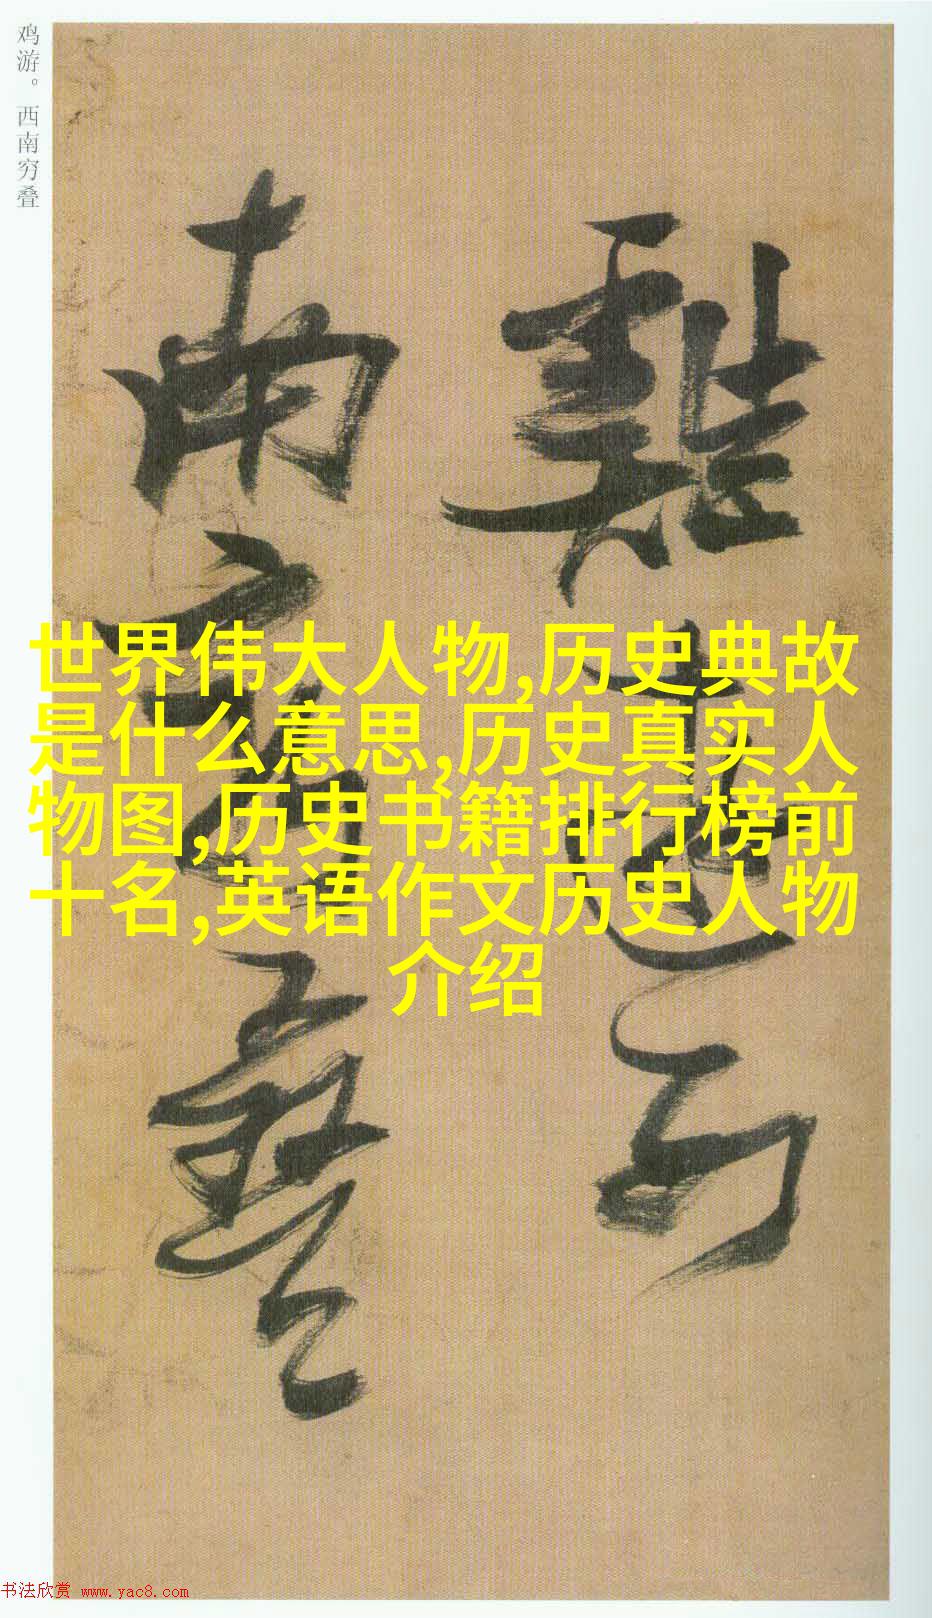 鸡游。西南穷叠
雞遊西
南窮疊
世界伟大人物,历史典故
是什么意思,历史真实人
物图,历史书籍排行榜前
十名,英语作文历史人物
介绍
书法欣赏 www.yac8.com